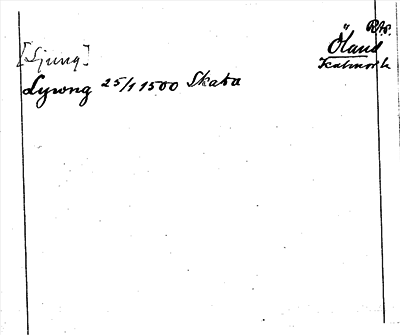 Rtr.
Öland
Kalmar l.
[Ljung]
Lywng 25/1 1500 Skata